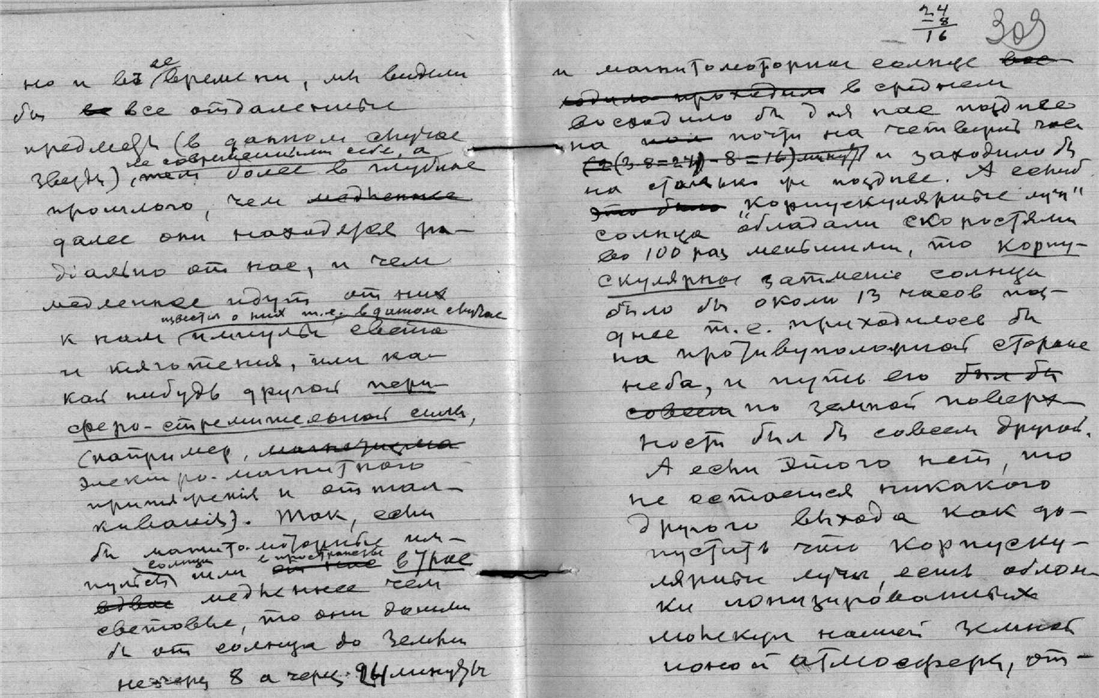 но и въ ее времени, мы видели
бы все отдаленные
предметы (в данном случае
не современными себе, а
звезды), тем более в глубине
прошлого, чем медленнее
далее они находятся ра-
дiально от нас, и чем
медленнее идут от них
известия о них т.е. в данном случае
к нам импульсы света
и тяготения, или ка-
кой нибудь другой пери-
сферо-стремительной силы,
(например, магнетизма
электро-магнитного
притяженiя и оттал-
киванiя). Так, если
бы магнито-моторные им-
солнца в пространстве
пульсы шли от нас в 3 раза
вдвое медленнее чем
световые, то они дошли
бы от солнца до Земли
не через 8 а через 24 минуты
24
-8
16
309
и магнитомоторное солнце вос-
ходило проходило в среднем
восходило бы для нас позднее
на почти на четверть часа
(3·8=24) - 8 = 16) минут и заходило бы
на столько же позднее. А если б
это было "корпускулярные лучи"
солнца обладали скоростями
во 100 раз меньшими, то корпу-
скулярное затменiе солнца
было бы около 13 часов поз-
днее т.е. приходилось бы
на противуположной стороне
неба, и путь его был бы
совсем по земной поверх-
ности был бы совсем другой.
А если этого нет, то
не остается никакого
другого выхода как до-
пустить что корпуску-
лярные лучи, есть облом-
ки ионизированных
молекул нашей земной
атмосферы, от-